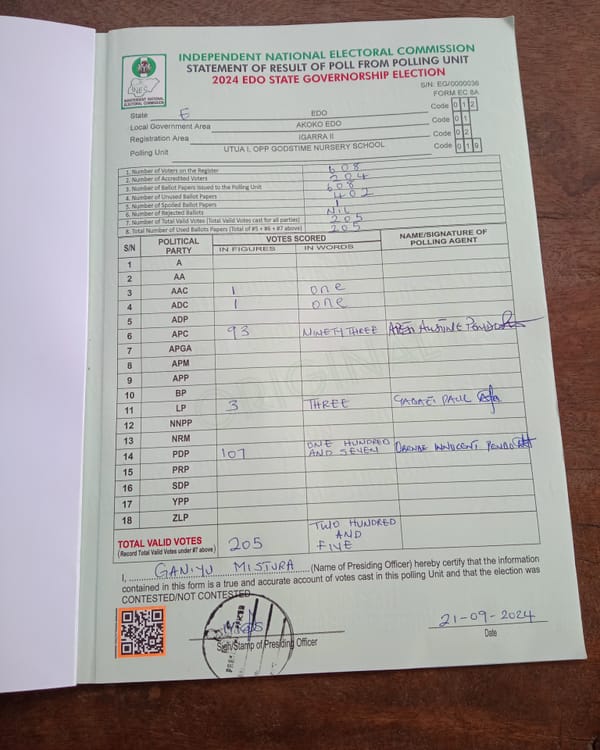 INDEPENDENT NATIONAL ELECTORAL COMMISSION
STATEMENT OF RESULT OF POLL FROM POLLING UNIT
2024 EDO STATE GOVERNORSHIP ELECTION
INEC
INDEPENDENT NATIONAL
ELECTORAL COMMISSION
S/N: EG/0000036
FORM EC 8A
State E EDO Code 0 1 2
Local Government Area AKOKO EDO Code 0 1
Registration Area IGARRA II Code 0 2
Polling Unit UTUA I, OPP GODSTIME NURSERY SCHOOL Code 0 1 9
1. Number of Voters on the Register 608
2. Number of Accredited Voters 204
3. Number of Ballot Papers issued to the Polling Unit 608
4. Number of Unused Ballot Papers 402
5. Number of Spoiled Ballot Papers 1
6. Number of Rejected Ballots NIL
7. Number of Total Valid Votes (Total Valid Votes cast for all parties) 205
8. Total Number of Used Ballots Papers (Total of #5 + #6 + #7 above) 205
S/N POLITICAL PARTY VOTES SCORED NAME/SIGNATURE OF POLLING AGENT
IN FIGURES IN WORDS
1 A
2 AA
3 AAC 1 one
4 ADC 1 one
5 ADP
6 APC 93 NINETY THREE
7 APGA
8 APM
9 APP
10 BP
11 LP 3 THREE PAUL
12 NNPP
13 NRM
14 PDP 107 ONE HUNDRED AND SEVEN INNOCENT
15 PRP
16 SDP
17 YPP
18 ZLP
TOTAL VALID VOTES 205 TWO HUNDRED AND FIVE
(Record Total Valid Votes under #7 above)
I, GANIYU MISTURA (Name of Presiding Officer) hereby certify that the information
contained in this form is a true and accurate account of votes cast in this polling Unit and that the election was
CONTESTED/NOT CONTESTED
Sign/Stamp of Presiding Officer
21-09-2024
Date